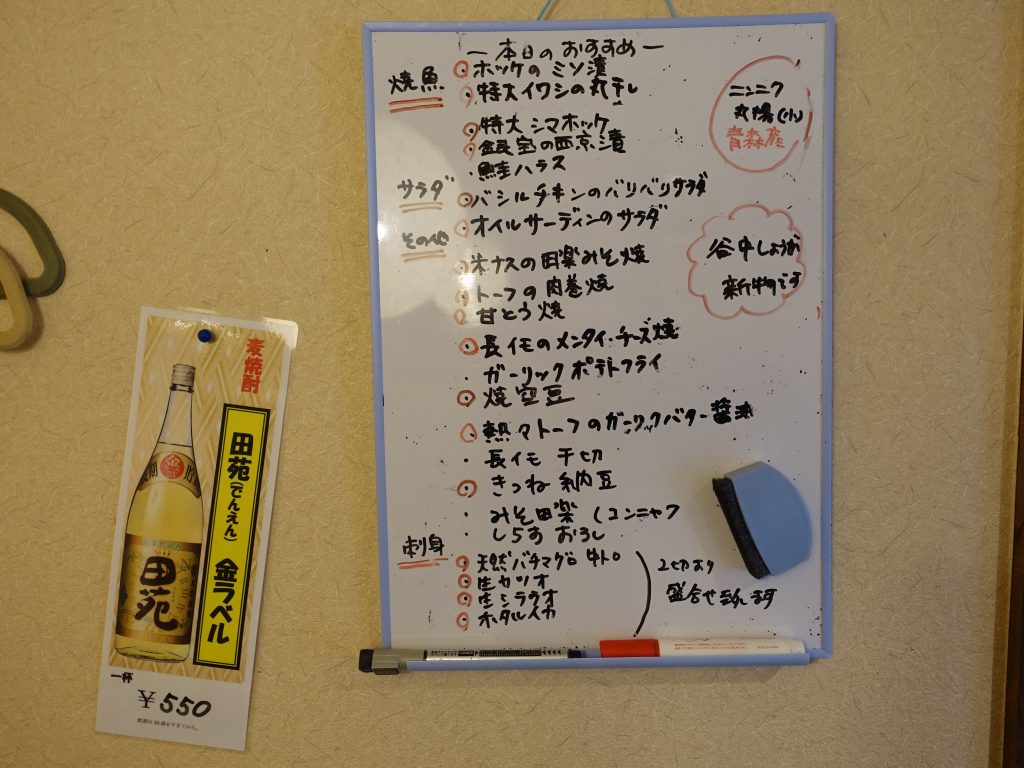 一本日のおすすめ一
焼魚
ホッケのミソ漬
特大イワシの丸干し
特大シマホッケ
銀宝の西京漬
鮭ハラス
サラダ
バジルチキンのバリバリサラダ
オイルサーディンのサラダ
その他
米ナスの田楽みそ焼
トーフの肉巻焼
甘とう焼
長イモのメンタイ・チーズ焼
ガーリックポテトフライ
焼空豆
熱々トーフのガーリックバター醤油
長イモ千切
きつね納豆
みそ田楽(コンニャク
しらすおろし
刺身
天然バチマグロ中トロ
生カツオ
生シラウオ
ホタルイカ
2切あり
盛合せ
ニンニク
丸揚
青森産
谷中しょうが
新物です
麦焼酎
田苑(でんえん) 金ラベル
金
貯
田苑
一杯
¥550